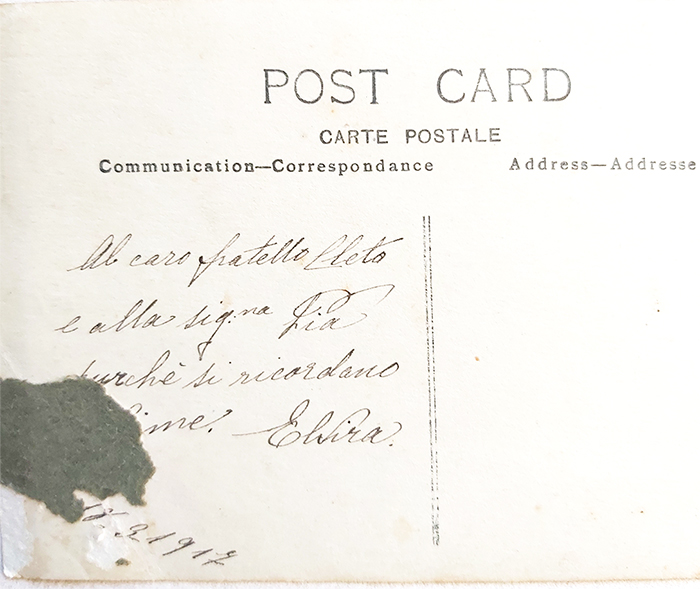 POST CARD
CARTE POSTALE
Communication—Correspondance
Address—Addresse
Al caro fratello Cleto
e alla sig.na Pia
purchè si ricordano
ime. Elvira.
18.3.1917